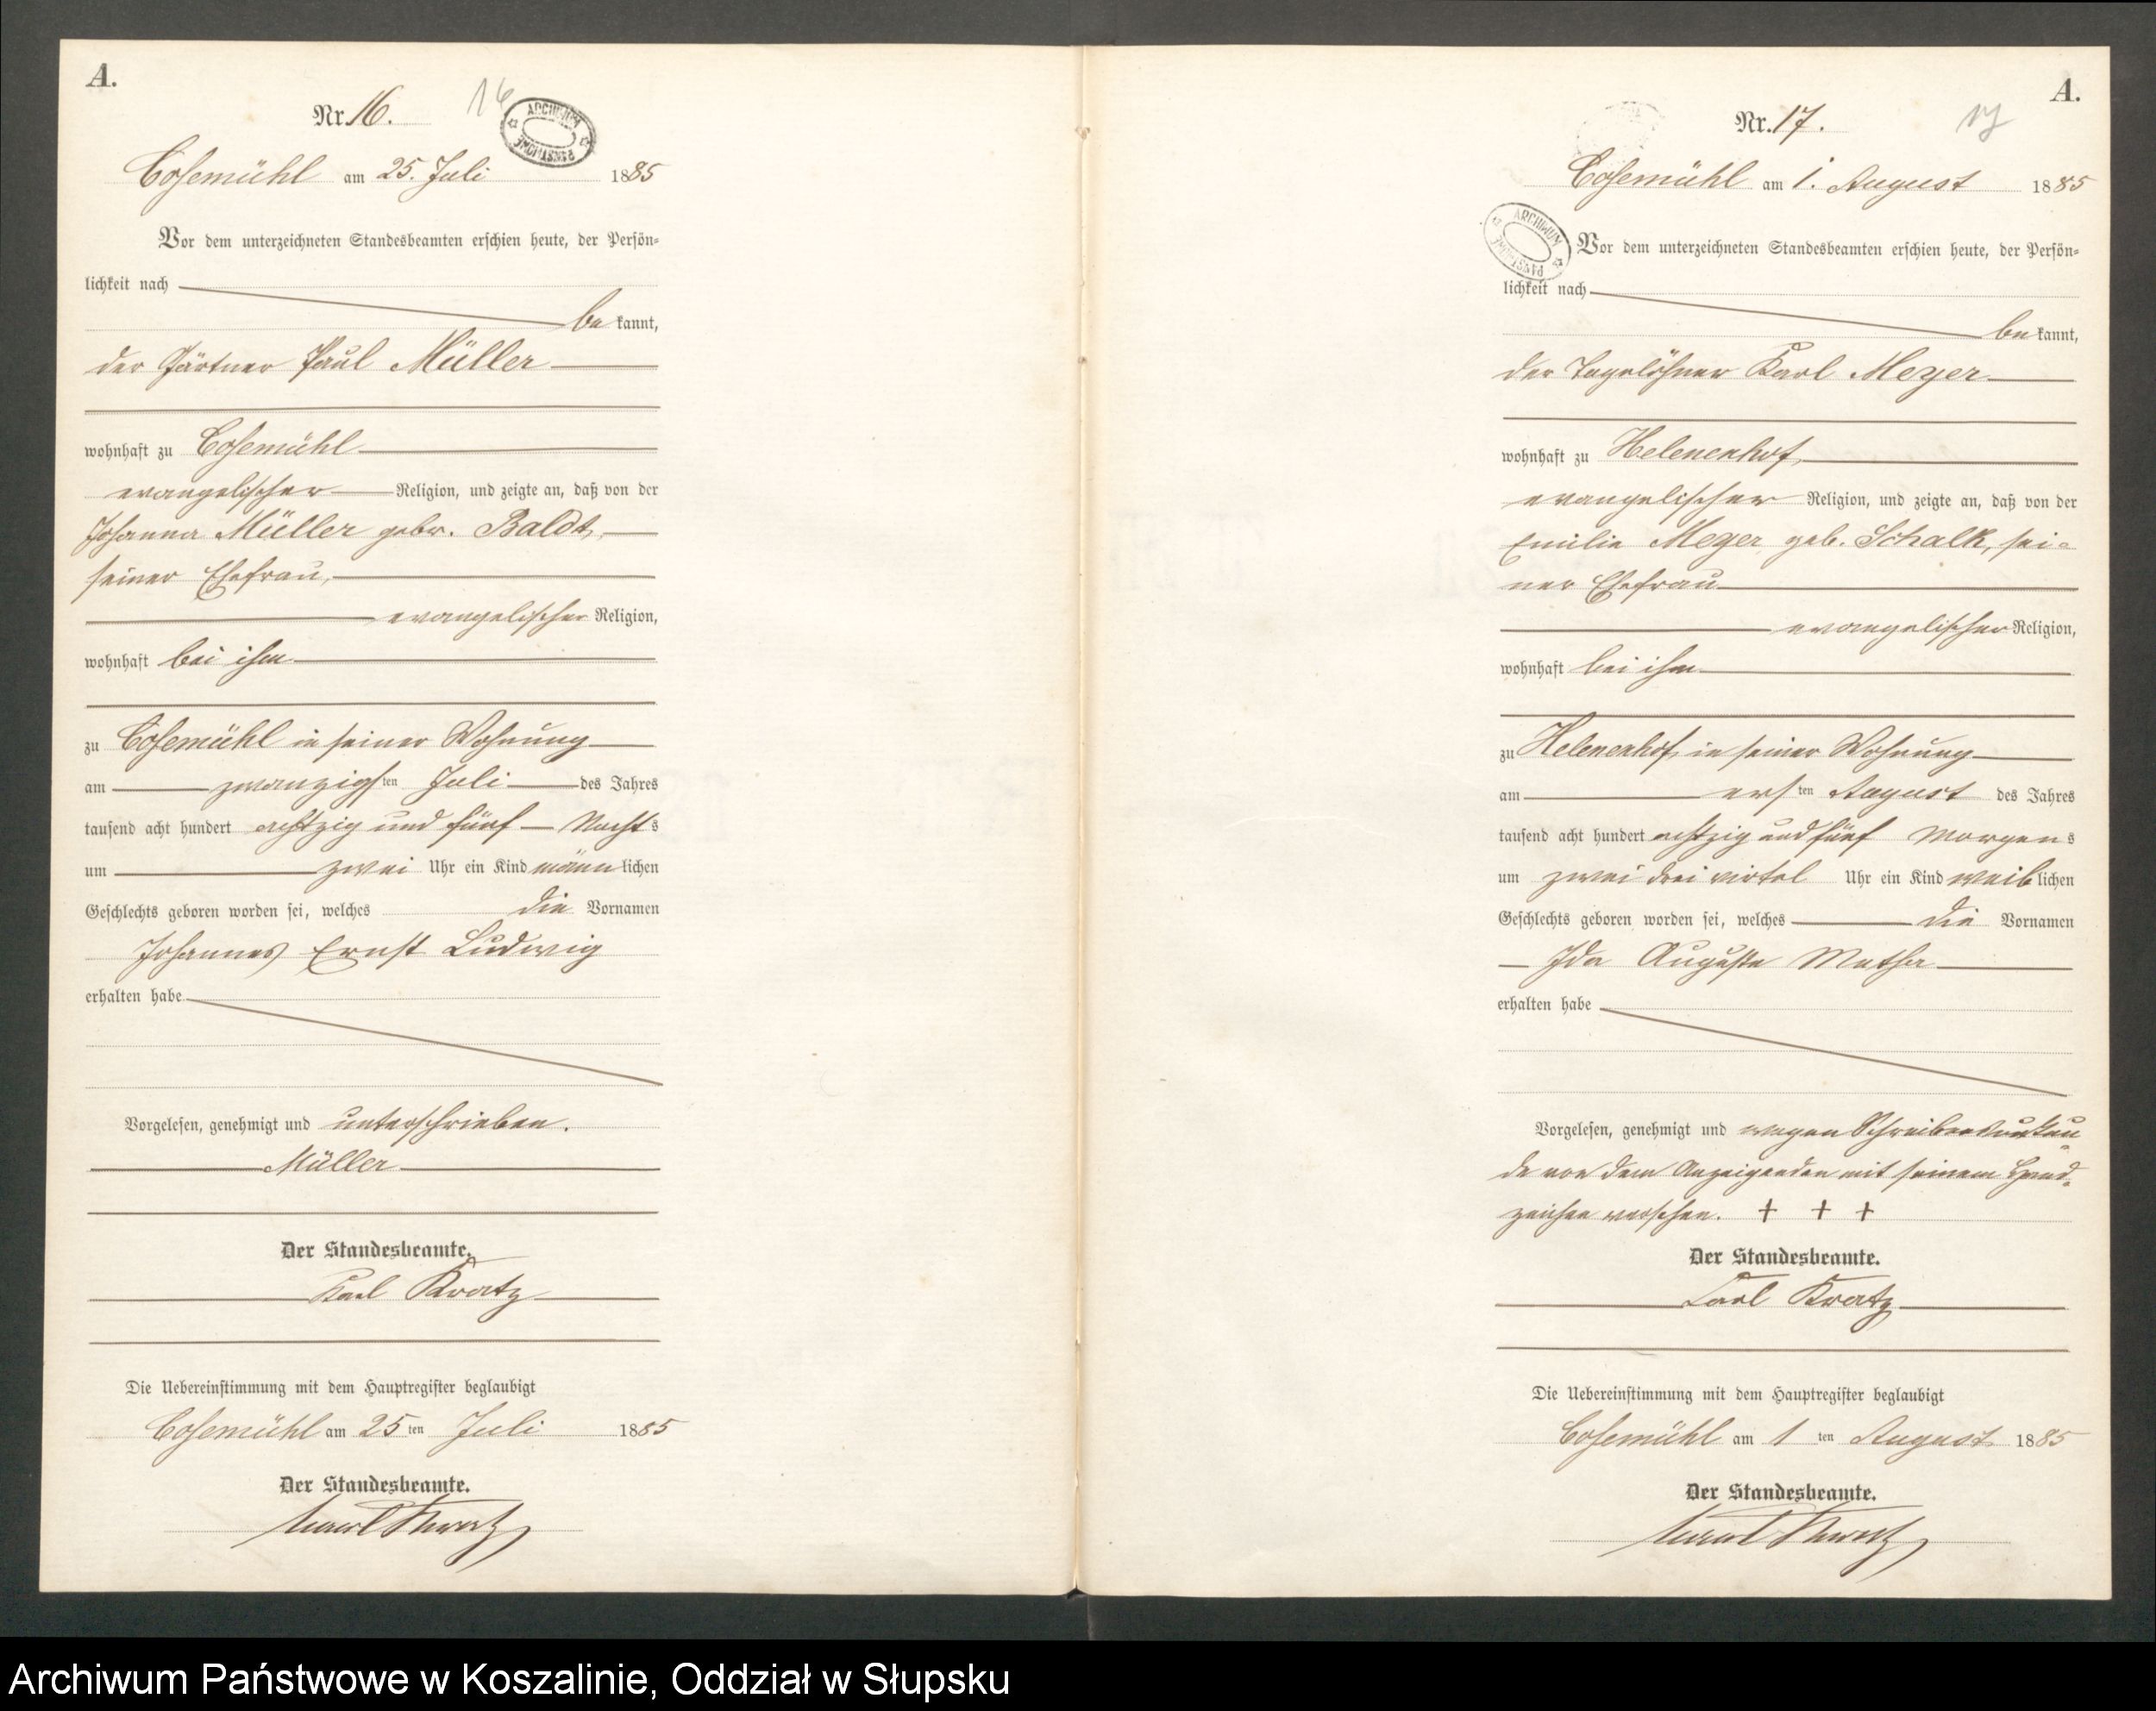 A.
Nr. 16.
16
ARCHIWUM PAŃSTWOWE
Cosemühl am 25. Juli 1885
Vor dem unterzeichneten Standesbeamten erschien heute, der Persön-
lichkeit nach
be kannt,
der Gärtner Paul Müller
wohnhaft zu Cosemühl
evangelischer Religion, und zeigte an, daß von der
Johanna Müller gebr. Baldt,
seiner Ehefrau,
evangelischer Religion,
wohnhaft bei ihm
zu Cosemühl in seiner Wohnung
am zwanzigsten Juli des Jahres
tausend acht hundert achtzig und fünf Nachts
um zwei Uhr ein Kind männlichen
Geschlechts geboren worden sei, welches die Vornamen
Johannes Ernst Ludwig
erhalten habe
Vorgelesen, genehmigt und unterschrieben.
Müller
Der Standesbeamte.
Karl Kratz
Die Uebereinstimmung mit dem Hauptregister beglaubigt
Cosemühl am 25 ten Juli 1885
Der Standesbeamte.
Karl Kratz
A.
Nr. 17.
17
Cosemühl am 1. August 1885
ARCHIWUM PAŃSTWOWE
Vor dem unterzeichneten Standesbeamten erschien heute, der Persön-
lichkeit nach
be kannt,
der Tagelöhner Karl Meyer
wohnhaft zu Helenenhof,
evangelischer Religion, und zeigte an, daß von der
Emilie Meyer geb. Schalk, sei-
ner Ehefrau
evangelischer Religion,
wohnhaft bei ihm
zu Helenenhof, in seiner Wohnung
am ersten August des Jahres
tausend acht hundert achtzig und fünf Morgens
um zwei drei virtel Uhr ein Kind weiblichen
Geschlechts geboren worden sei, welches die Vornamen
Ida Auguste
erhalten habe
Vorgelesen, genehmigt und wegen Schreibensunkun-
de von dem Anzeigenden mit seinem Hand-
zeichen versehen. + + +
Der Standesbeamte.
Karl Kratz
Die Uebereinstimmung mit dem Hauptregister beglaubigt
Cosemühl am 1 ten August 1885
Der Standesbeamte.
Karl Kratz
Archiwum Państwowe w Koszalinie, Oddział w Słupsku